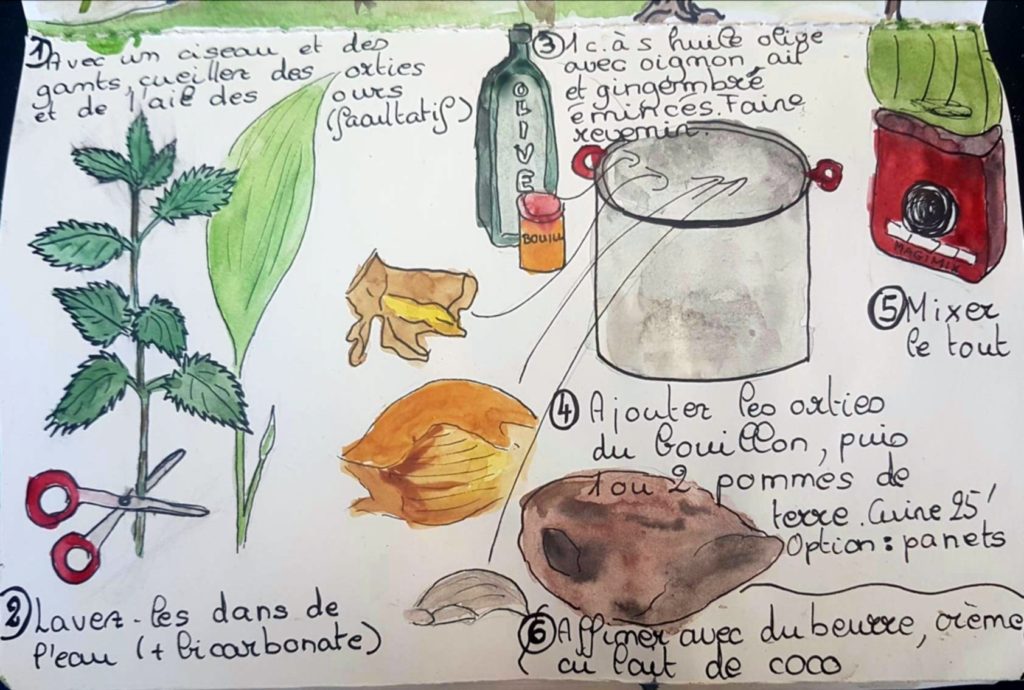 1) Avec un ciseau et des
gants, cueillez des orties
et de l'ail des ours
(facultatif)
2 Lavez-les dans de
l'eau (+ bicarbonate)
OLIVE
BOUILL
3 1 c. à s huile olive
avec oignon ail
et gingembre
émincés. Faire
revenir.
4 Ajouter les orties
du bouillon, puis
1 ou 2 pommes de
terre. Cuire 25'
Option : panets
MAGIMIX
5 Mixer
le tout
6 Affiner avec du beurre, crème
ou lait de coco